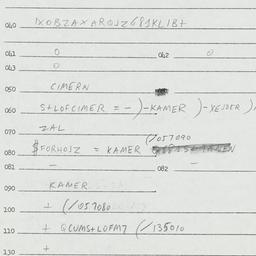 040 1XOBZAXARQJZ681KL1B7
041 0 042 0
043 0
050 CIMERN
060 S+LOFCIMER = - )-KAMER )-XEJDER )
070 ZAL
080 $FORHOJZ = KAMER (/057090
081 - 082 -
090 KAMER
100 + (/057080
110 + QCUMS+LOFM7 (/135010
130 +